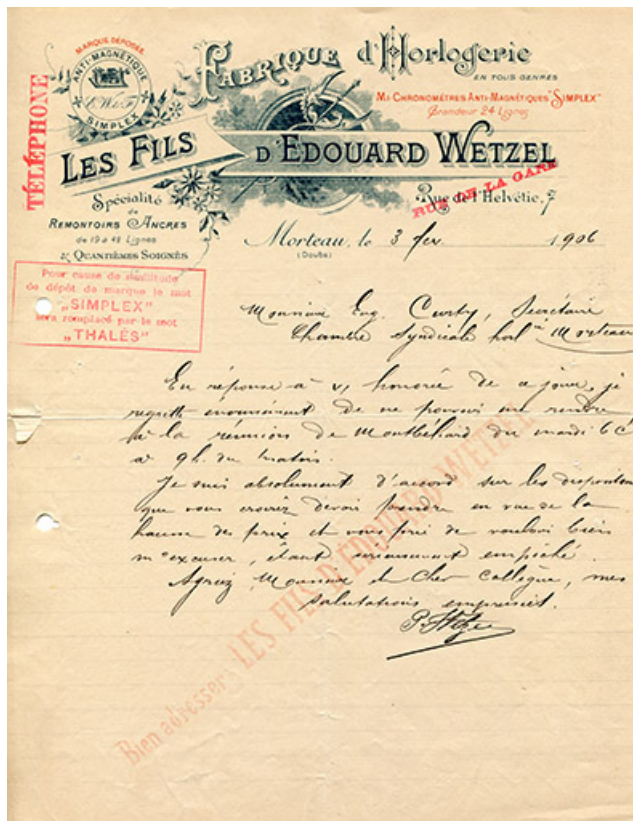 MARQUE DÉPOSÉE
ANTI-MAGNÉTIQUE
E.W & F.
SIMPLEX
TÉLÉPHONE
FABRIQUE d'Horlogerie
EN TOUS GENRES
MI-CHRONOMÈTRES ANTI-MAGNÉTIQUES "SIMPLEX"
Grandeur 24 Lignes
LES FILS D'EDOUARD WETZEL
Rue de l'Helvétie, 7
RUE DE LA GARE
Spécialité
de
REMONTOIRS ANCRES
de 19 à 48 Lignes
& QUANTIÈMES SOIGNÉS
Morteau, le 3 fev 1906
(Doubs)
Pour cause de similitude
de dépôt de marque le mot
„SIMPLEX"
sera remplacé par le mot
„THALÈS"
Monsieur Eug. Curty, Secrétaire
Chambre Syndicale horl Morteau
En réponse à v, honorée de ce jour, je
regrette de ne pouvoir me rendre
à la réunion de Montbéliard du mardi 6 Ct
à 9h. du matin.
Je suis absolument d'accord sur les
que vous croirez devoir prendre en vue de la
hausse des prix et vous prie de vouloir bien
m'excuser, étant sérieusement empêché.
Agréez, Monsieur et Cher Collègue, mes
salutations empressées.
Bien adresser: LES FILS D'EDOUARD WETZEL